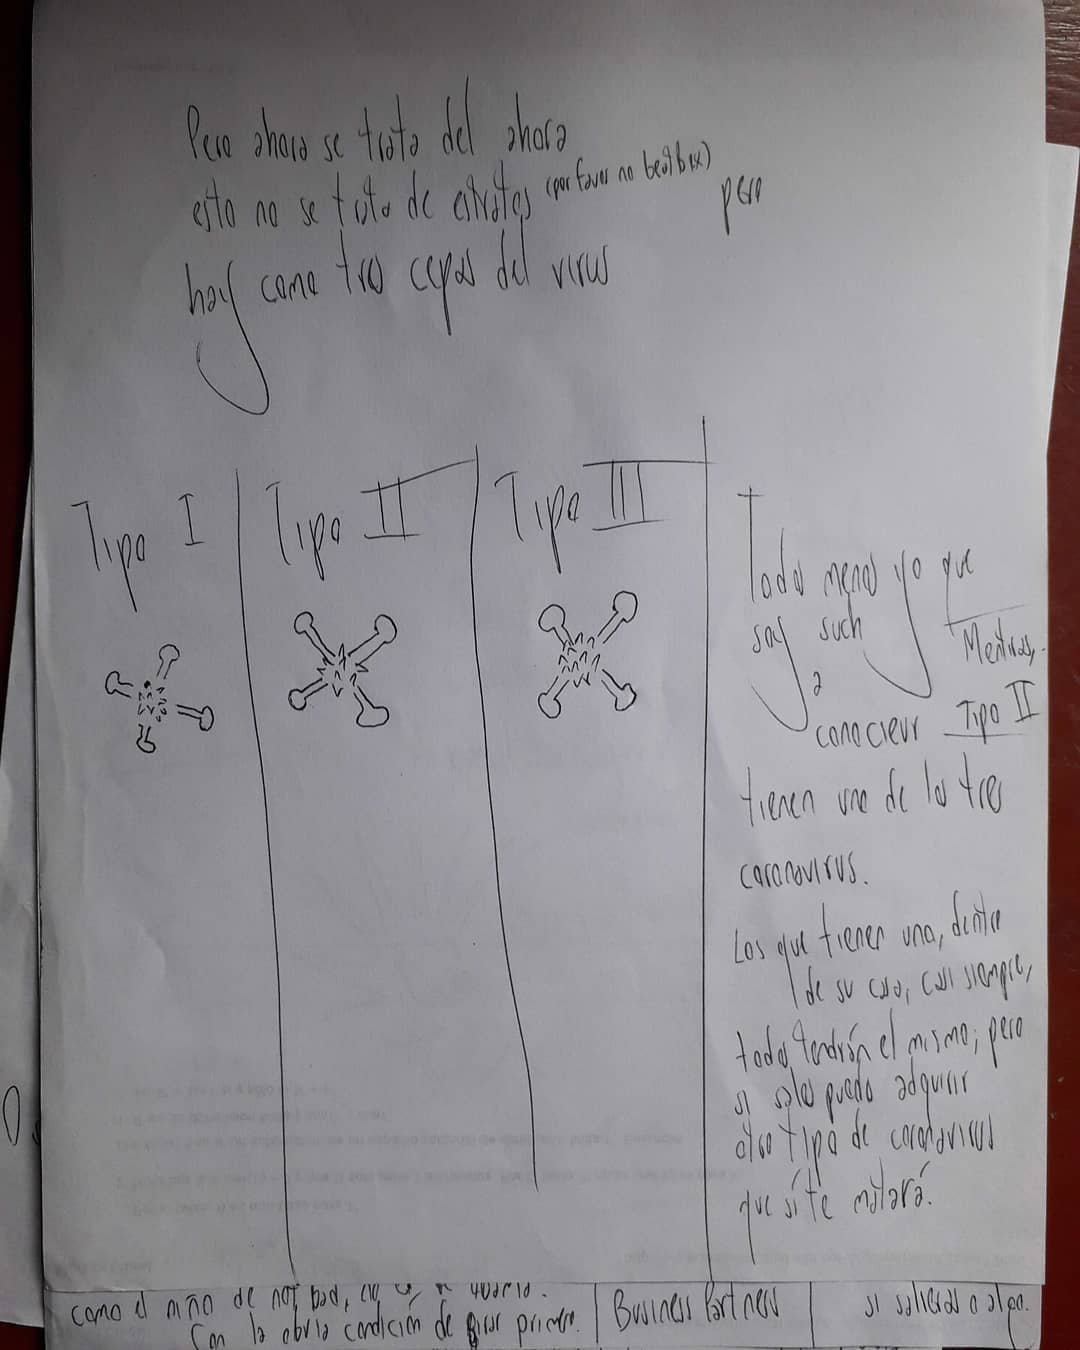 Pero ahora se trata del ahora
esto no se trata de estratos (por favor no beatbox) pero
hay como tres cepas del virus
Tipo I
Tipo II
Tipo III
Todos menos yo que
soy such
a
conocieur
Mentiras,
Tipo II
tienen uno de los tres
coronavirus.
Los que tienen una, dentro
de su casa, casi siempre,
todos tendrán el mismo; pero
si sales puedo adquirir
otro tipo de coronavirus
que sí te matará.
como el niño de not bad,
Con la obvia condición de primero.
Business Partners
si salieras o algo.